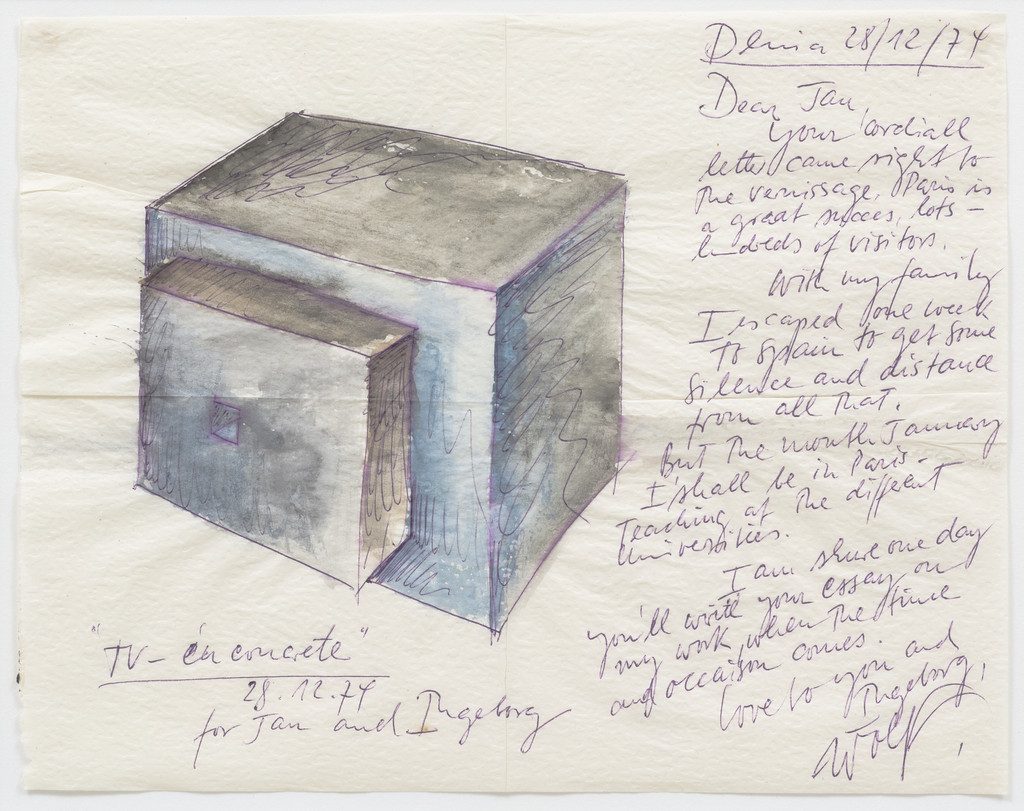 Denia 28/12/74
Dear Jan,
your cordiall
letter came right to
the vernissage. Paris is
a great succes, lots –
hundreds of visitors.
With my family
I escaped one week
to Spain to get some
silence and distance
from all that.
But the month January
I shall be in Paris –
teaching at the different
Universities.
I am shure one day
you'll write your essay on
my work, when the time
and occaison comes.
Love to you and
Ingeborg,
Wolf,
"TV – en concrete"
28.12.74
for Jan and Ingeborg